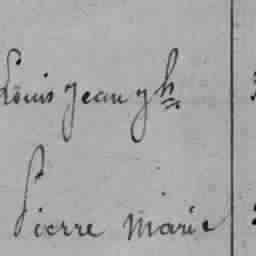 Louis Jean yh
Pierre Marie